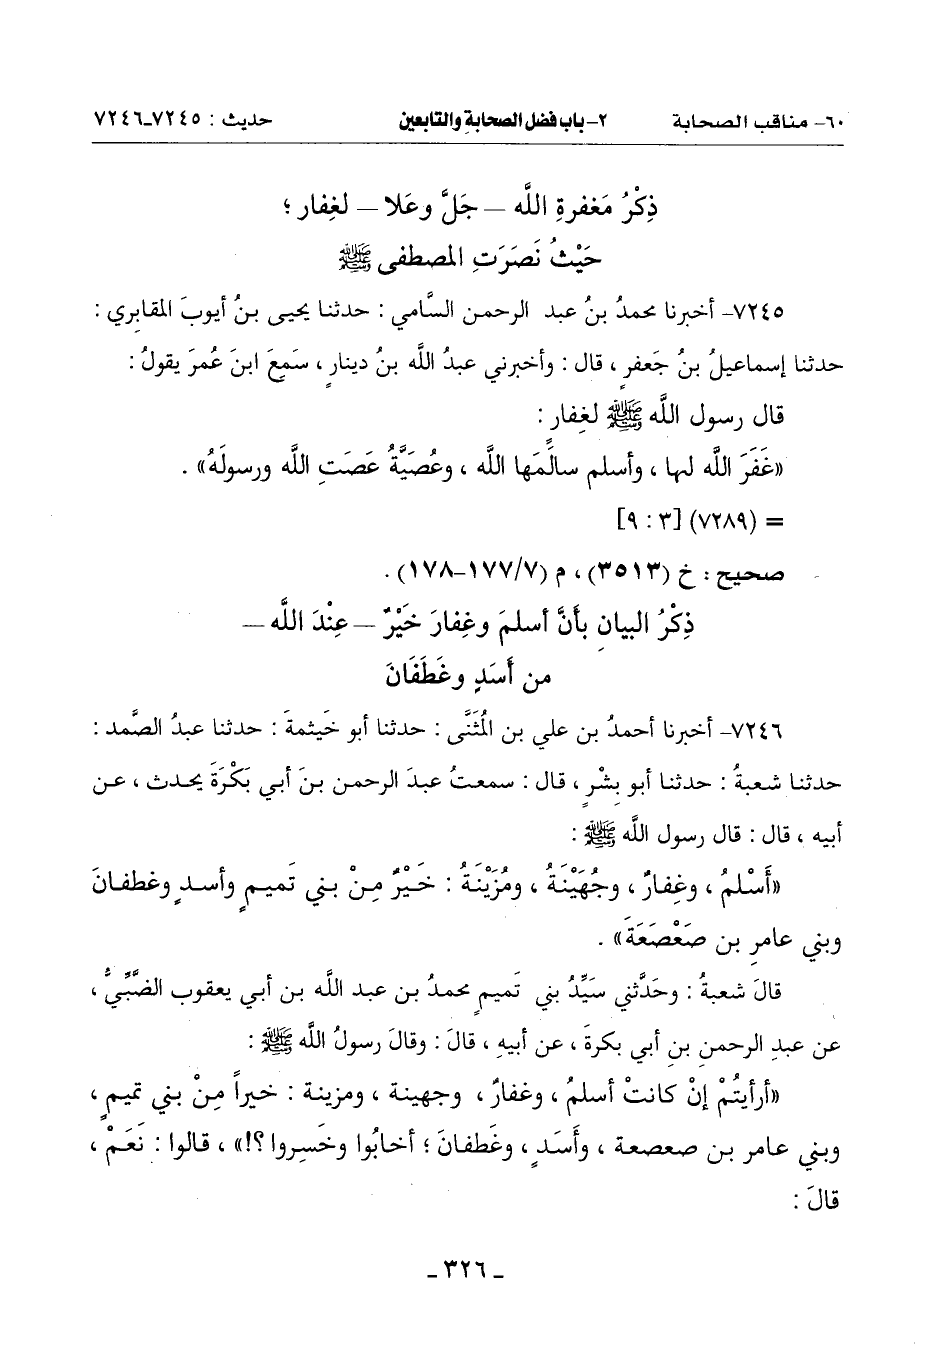 ٦٠- مناقب الصحابة ٢- باب فضل الصحابة والتابعين حديث : ٧٢٤٥-٧٢٤٦
ذِكْرُ مَغفرةِ اللَّه – جَلَّ وعَلا – لغِفار ؛
حَيْثُ نَصَرَتِ المصطفى ﷺ
٧٢٤٥- أخبرنا محمدُ بنُ عبد الرحمن السَّامي : حدثنا يحيى بنُ أيوبَ المقابري :
حدثنا إسماعيلُ بنُ جَعفرٍ ، قال : وأخبرني عبدُ اللَّه بنُ دينارٍ ، سَمِعَ ابنَ عُمرَ يقولُ :
قال رسول اللَّه ﷺ لغِفار :
«غَفَرَ اللَّه لها ، وأسلم سالَمَها اللَّه ، وعُصَيَّةُ عَصَتِ اللَّه ورسولَهُ» .
= (٧٢٨٩) [٣ : ٩]
صحيح : خ (٣٥١٣) ، م (١٧٧/٧-١٧٨) .
ذِكْرُ البيانِ بأَنَّ أسلمَ وغِفارَ خَيْرٌ – عِنْدَ اللَّه –
من أَسَدٍ وغَطَفَانَ
٧٢٤٦- أخبرنا أحمدُ بن علي بن المُثَنَّى : حدثنا أبو خَيثمةَ : حدثنا عبدُ الصَّمد :
حدثنا شعبةُ : حدثنا أبو بِشْرٍ ، قال : سمعتُ عبدَ الرحمن بنَ أبي بَكْرَةَ يحدث ، عن
أبيه ، قال : قال رسول اللَّه ﷺ :
«أَسْلمُ ، وغِفارٌ ، وجُهَيْنَةُ ، ومُزَيْنَةُ : خَيْرٌ مِنْ بني تَميمٍ وأسدٍ وغطفانَ
وبني عامرِ بن صَعْصَعَةَ» .
قالَ شعبةُ : وحَدَّثني سَيِّدُ بني تَميمٍ محمدُ بن عبد اللَّه بن أبي يعقوب الضَّبِّيُّ ،
عن عبدِ الرحمنِ بنِ أبي بكرةَ ، عن أبيهِ ، قالَ : وقالَ رسولُ اللَّه ﷺ :
«أرأيتُمْ إنْ كانتْ أسلمُ ، وغفارٌ ، وجهينة ، ومزينة : خيراً مِنْ بني تميمٍ ،
وبني عامر بن صعصعة ، وأَسَدٍ ، وغَطفانَ ؛ أخابُوا وخَسِروا ؟!» ، قالوا : نَعَمْ ،
قالَ :
- ٣٢٦ -